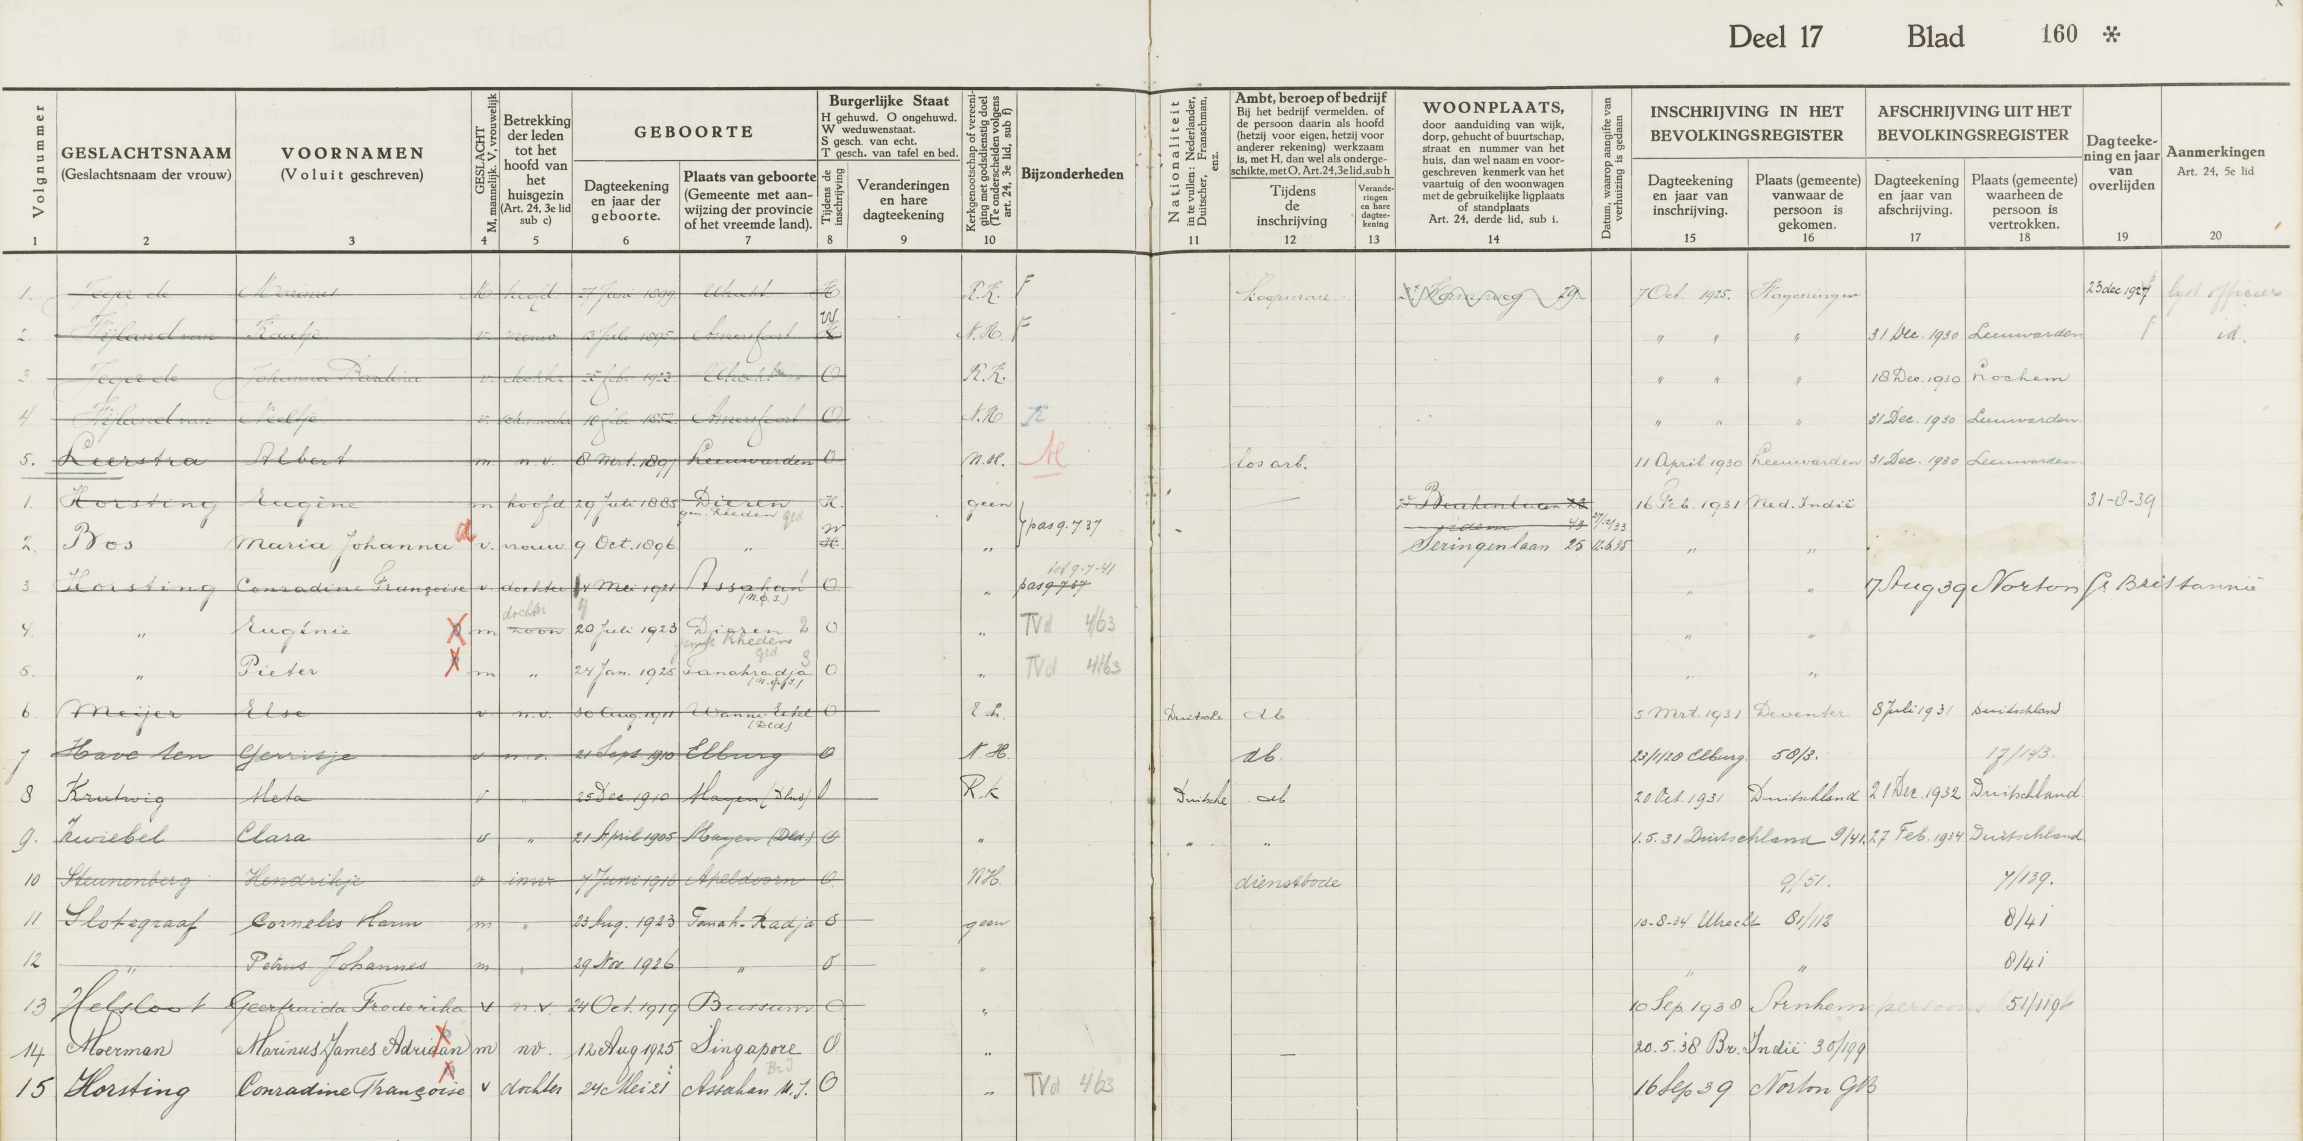 Deel 17 Blad 160 *
Volgnummer
1
GESLACHTSNAAM
(Geslachtsnaam der vrouw)
2
VOORNAMEN
(Voluit geschreven)
3
GESLACHT
M, mannelijk. V, vrouwelijk
4
Betrekking
der leden
tot het
hoofd van
het
huisgezin
(Art. 24, 3e lid
sub c)
5
GEBOORTE
Dagteekening
en jaar der
geboorte.
6
Plaats van geboorte
(Gemeente met aan-
wijzing der provincie
of het vreemde land).
7
Burgerlijke Staat
H gehuwd. O ongehuwd.
W weduwenstaat.
S gesch. van echt.
T gesch. van tafel en bed.
Tijdens de
inschrijving
8
Veranderingen
en hare
dagteekening
9
Kerkgenootschap of vereeni-
ging met godsdienstig doel
(Te onderscheiden volgens
art. 24, 3e lid, sub f)
10
Bijzonderheden
Nationaliteit
in te vullen: Nederlander,
Duitscher, Franschman,
enz.
11
Ambt, beroep of bedrijf
Bij het bedrijf vermelden. of
de persoon daarin als hoofd
(hetzij voor eigen, hetzij voor
anderer rekening) werkzaam
is, met H, dan wel als onderge-
schikte, met O. Art. 24, 3e lid, sub h
Tijdens
de
inschrijving
12
Verande-
ringen
en hare
dagtee-
kening
13
WOONPLAATS,
door aanduiding van wijk,
dorp, gehucht of buurtschap,
straat en nummer van het
huis, dan wel naam en voor-
geschreven kenmerk van het
vaartuig of den woonwagen
met de gebruikelijke ligplaats
of standplaats
Art. 24, derde lid, sub i.
14
Datum, waarop aangifte van
verhuizing is gedaan
INSCHRIJVING IN HET
BEVOLKINGSREGISTER
Dagteekening
en jaar van
inschrijving.
15
Plaats (gemeente)
vanwaar de
persoon is
gekomen.
16
AFSCHRIJVING UIT HET
BEVOLKINGSREGISTER
Dagteekening
en jaar van
afschrijving.
17
Plaats (gemeente)
waarheen de
persoon is
vertrokken.
18
Dagteeke-
ning en jaar
van
overlijden
19
Aanmerkingen
Art. 24, 5e lid
20
1. Jager de Marinus M hoofd 27 Juni 1899 Utrecht H R.K. F koopman 29 7 Oct. 1925. Wageningen 23 dec 1927
W
2. Nijland van v. vrouw 13 Juli 1895 Amersfoort H N.H. F " " " 31 Dec. 1930 Leeuwarden F id.
3. Jager de Johanna v. dochter 25 febr 1923 Utrecht O R.K. " " " 18 Dec. 1930 Lochem
4. Nijland van Neeltje v. 10 febr 1852 Amersfoort O N.H K " " " 31 Dec. 1930 Leeuwarden
5. Leerstra Albert m. n.v. 8 Mrt. 1897 Leeuwarden O N.H. M los arb. 11 April 1930 Leeuwarden 31 Dec. 1930 Leeuwarden
1. Horsting Eugène m hoofd 29 Juli 1885 Dieren H. geen Beukenlaan 28 16 Feb. 1931 Ned. Indië 31-8-39
gem. Rheden gld
pas 9.7 37 idem 43 27/12/33
W
2. Bos Maria Johanna d v. vrouw 9 Oct. 1896 " H. " Seringenlaan 25 12.6.35 " "
tot 9-7-41
3. Horsting Conradine Françoise v dochter 24 Mei 1921 Assahan O " pas 9-7-37 " " 17 Aug 39 Norton Gr Brittannië
(N.O.I.)
dochter
4. " Eugénie m zoon 20 Juli 1923 Dieren 2 O " TVd 4/63 " "
gem. Rheden
gld
5. " Pieter m " 24 Jan. 1925 Tanahradja O " TVd 4/63 " "
(N.O.I.)
6 Meijer Else v n.v. 30 Aug. 1911 Wanne-Eikel O E.L. Duitsche db 5 Mrt. 1931 Deventer 8 Juli 1931 Duitschland
(Dld)
7 Have ten Gerrisje v n.v. 21 Sept 1910 Elburg O N.H. db 23/1/20 Elburg 58/3. 17/143.
8 Krutwig Meta v " 25 Dec. 1910 Mayen (Dld) O R.K Duitsche db 20 Oct. 1931 Duitschland 21 Dec. 1932 Duitschland
9. Zwiebel Clara v " 21 April 1905 Mayen (Dld.) O " " " 1.5.31 Duitschland 9/41. 27 Feb. 1934 Duitschland
10 Steunenberg Hendrikje v inw 7 Juni 1916 Apeldoorn O. NH. dienstbode 9/51. 7/139.
11 Slotegraaf Cornelis Harm m " 23 Aug. 1923 Tanah-Radja O geen 10-8-34 Utrecht 81/113 8/41
12 " Petrus Johannes m " 29 Nov. 1926 " O " " " 8/41
13 Helsloot Geertruida Frederika v n.v. 24 Oct. 1919 Bussum O " 10 Sep. 1938 Arnhem persoons 51/119
14 Moerman Marinus James Adriaan m nv. 12 Aug 1925 Singapore O " — 20.5.38 Br. Indië 30/199
Br I
15 Horsting Conradine Françoise v dochter 24 Mei 21 Assahan N.I. O " TVd 4/63 16 Sep 39 Norton GB